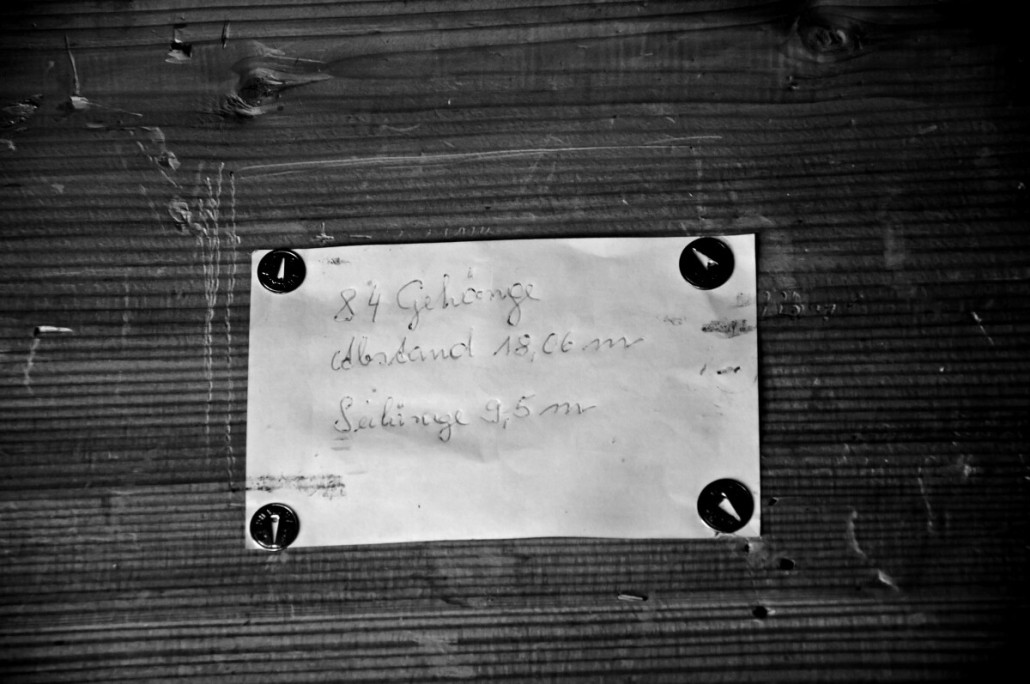 84 Gehänge
Abstand 18,06 m
Seilänge 9,5 m